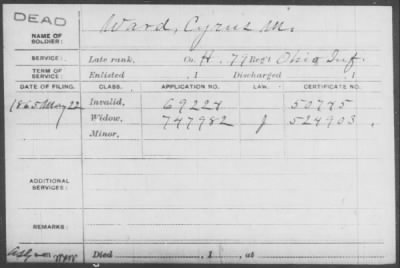 DEAD
NAME OF SOLDIER: Ward, Cyrus M.
SERVICE: Late rank, Co. H. 79 Reg't Ohio Inf.
TERM OF SERVICE: Enlisted , 1 Discharged , 1
DATE OF FILING. CLASS. APPLICATION NO. LAW. CERTIFICATE NO.
1865 May 22 Invalid, 69224 50745
Widow, 747982 J 524903.
Minor,
ADDITIONAL SERVICES:
REMARKS:
Died , 1 , at